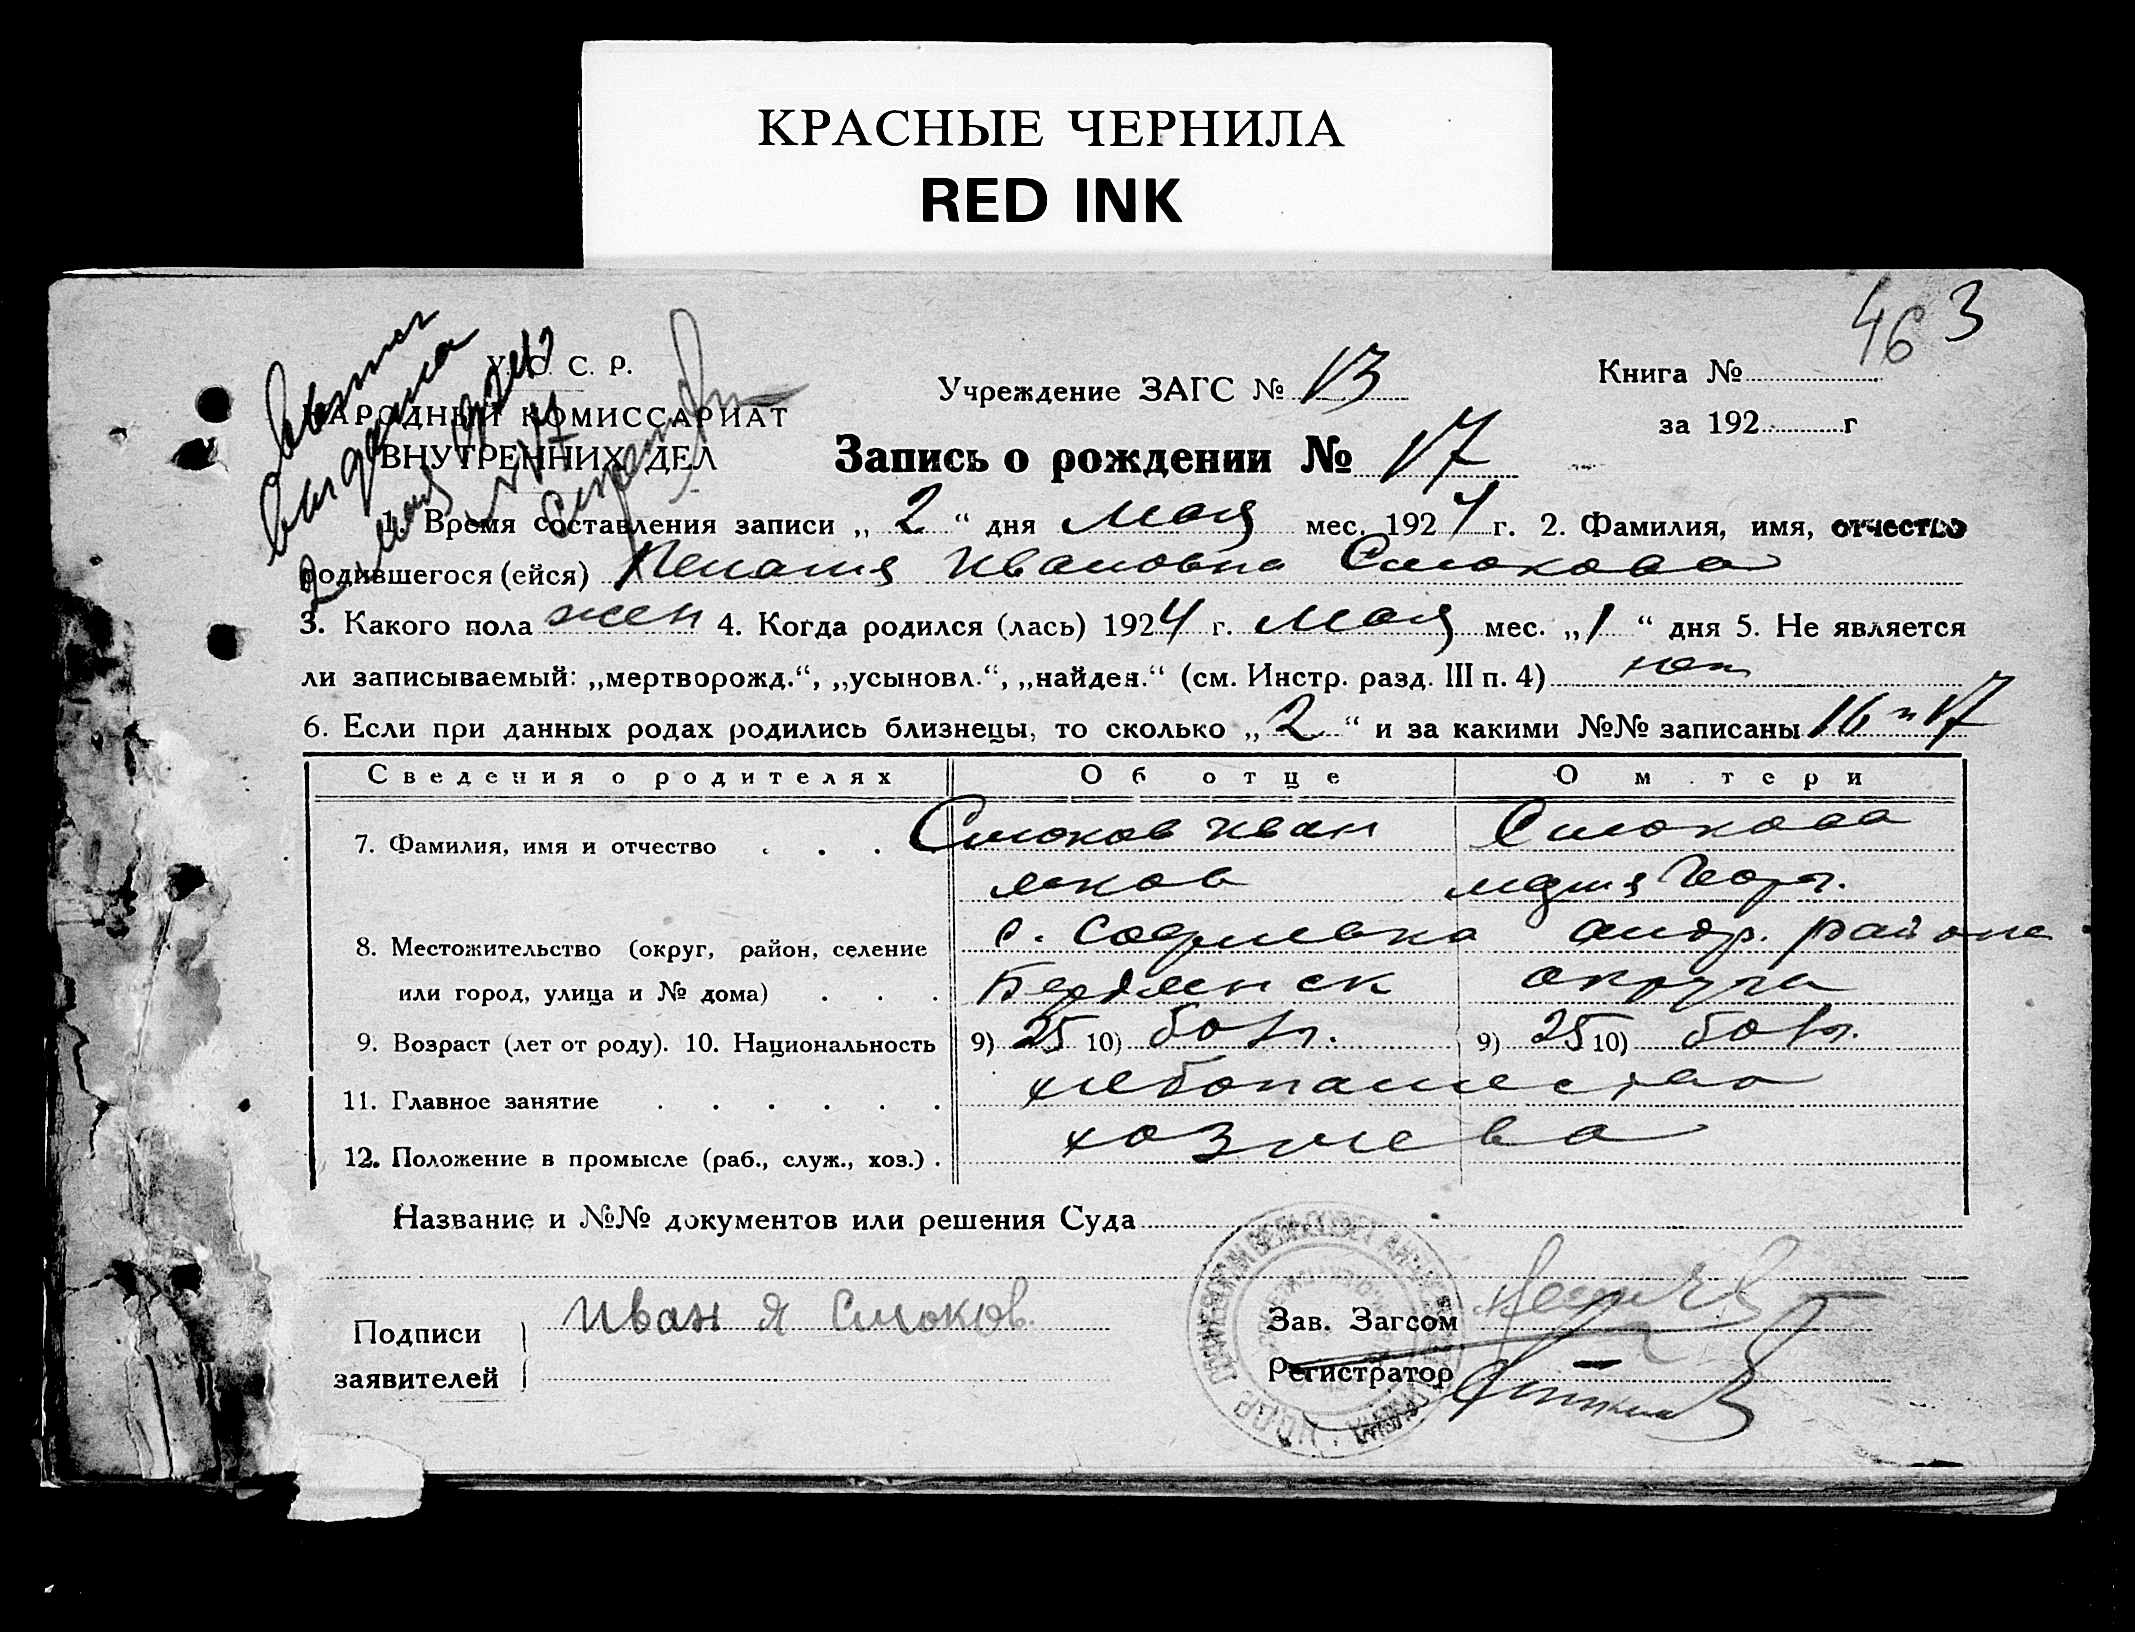 КРАСНЫЕ ЧЕРНИЛА
RED INK
46 3
У. С. С. Р.
НАРОДНЫЙ КОМИССАРИАТ
ВНУТРЕННИХ ДЕЛ
выдана
2 мая
№ 17
Учреждение ЗАГС № 13
Книга №
за 192 г
Запись о рождении № 17
1. Время составления записи „ 2 “ дня мая мес. 1924 г. 2. Фамилия, имя, отчество
родившегося (ейся) Пелагия Ивановна Слюкова
3. Какого пола жен 4. Когда родился (лась) 1924 г. мая мес. „ 1 “ дня 5. Не является
ли записываемый: „мертворожд.“, „усыновл.“, „найден.“ (см. Инстр. разд. III п. 4) нет
6. Если при данных родах родились близнецы, то сколько „ 2 “ и за какими №№ записаны 16 и 17
Сведения о родителях Об отце О матери
7. Фамилия, имя и отчество Слюков Иван Слюкова
яков Геор.
8. Местожительство (округ, район, селение с. Софиевка андр. района
или город, улица и № дома) Бердянск округа
9. Возраст (лет от роду). 10. Национальность 9) 25 10) болг. 9) 25 10) болг.
11. Главное занятие хлебопашество
12. Положение в промысле (раб., служ., хоз.) хозяева
Название и №№ документов или решения Суда
Подписи
заявителей
Иван Я Слюков.
Зав. Загсом
Регистратор